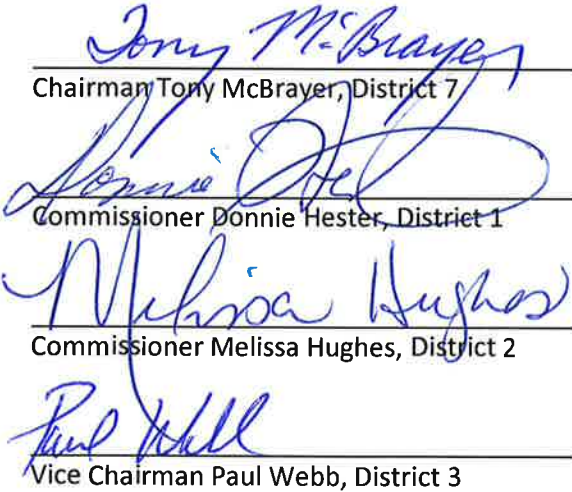 Tony McBrayer
Chairman Tony McBrayer, District 7
Donnie Hester
Commissioner Donnie Hester, District 1
Melissa Hughes
Commissioner Melissa Hughes, District 2
Paul Webb
Vice Chairman Paul Webb, District 3